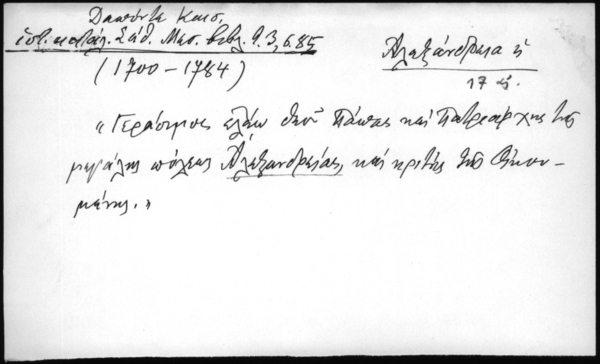 Δαπόντε Καισ,
ἱστ. κατάλ. Σάθ. Μεσ. βιβλ. τ. 3, σ. 85
(1700 – 1784)
Ἀλεξάνδρεια ἡ
17 αἰ.
« Γεράσιμος ἐλέῳ Θεοῦ Πάπας καὶ Πατριάρχης τῆς
μεγάλης πόλεως Ἀλεξανδρείας, καὶ κριτὴς τῆς Οἰκου-
μένης. »